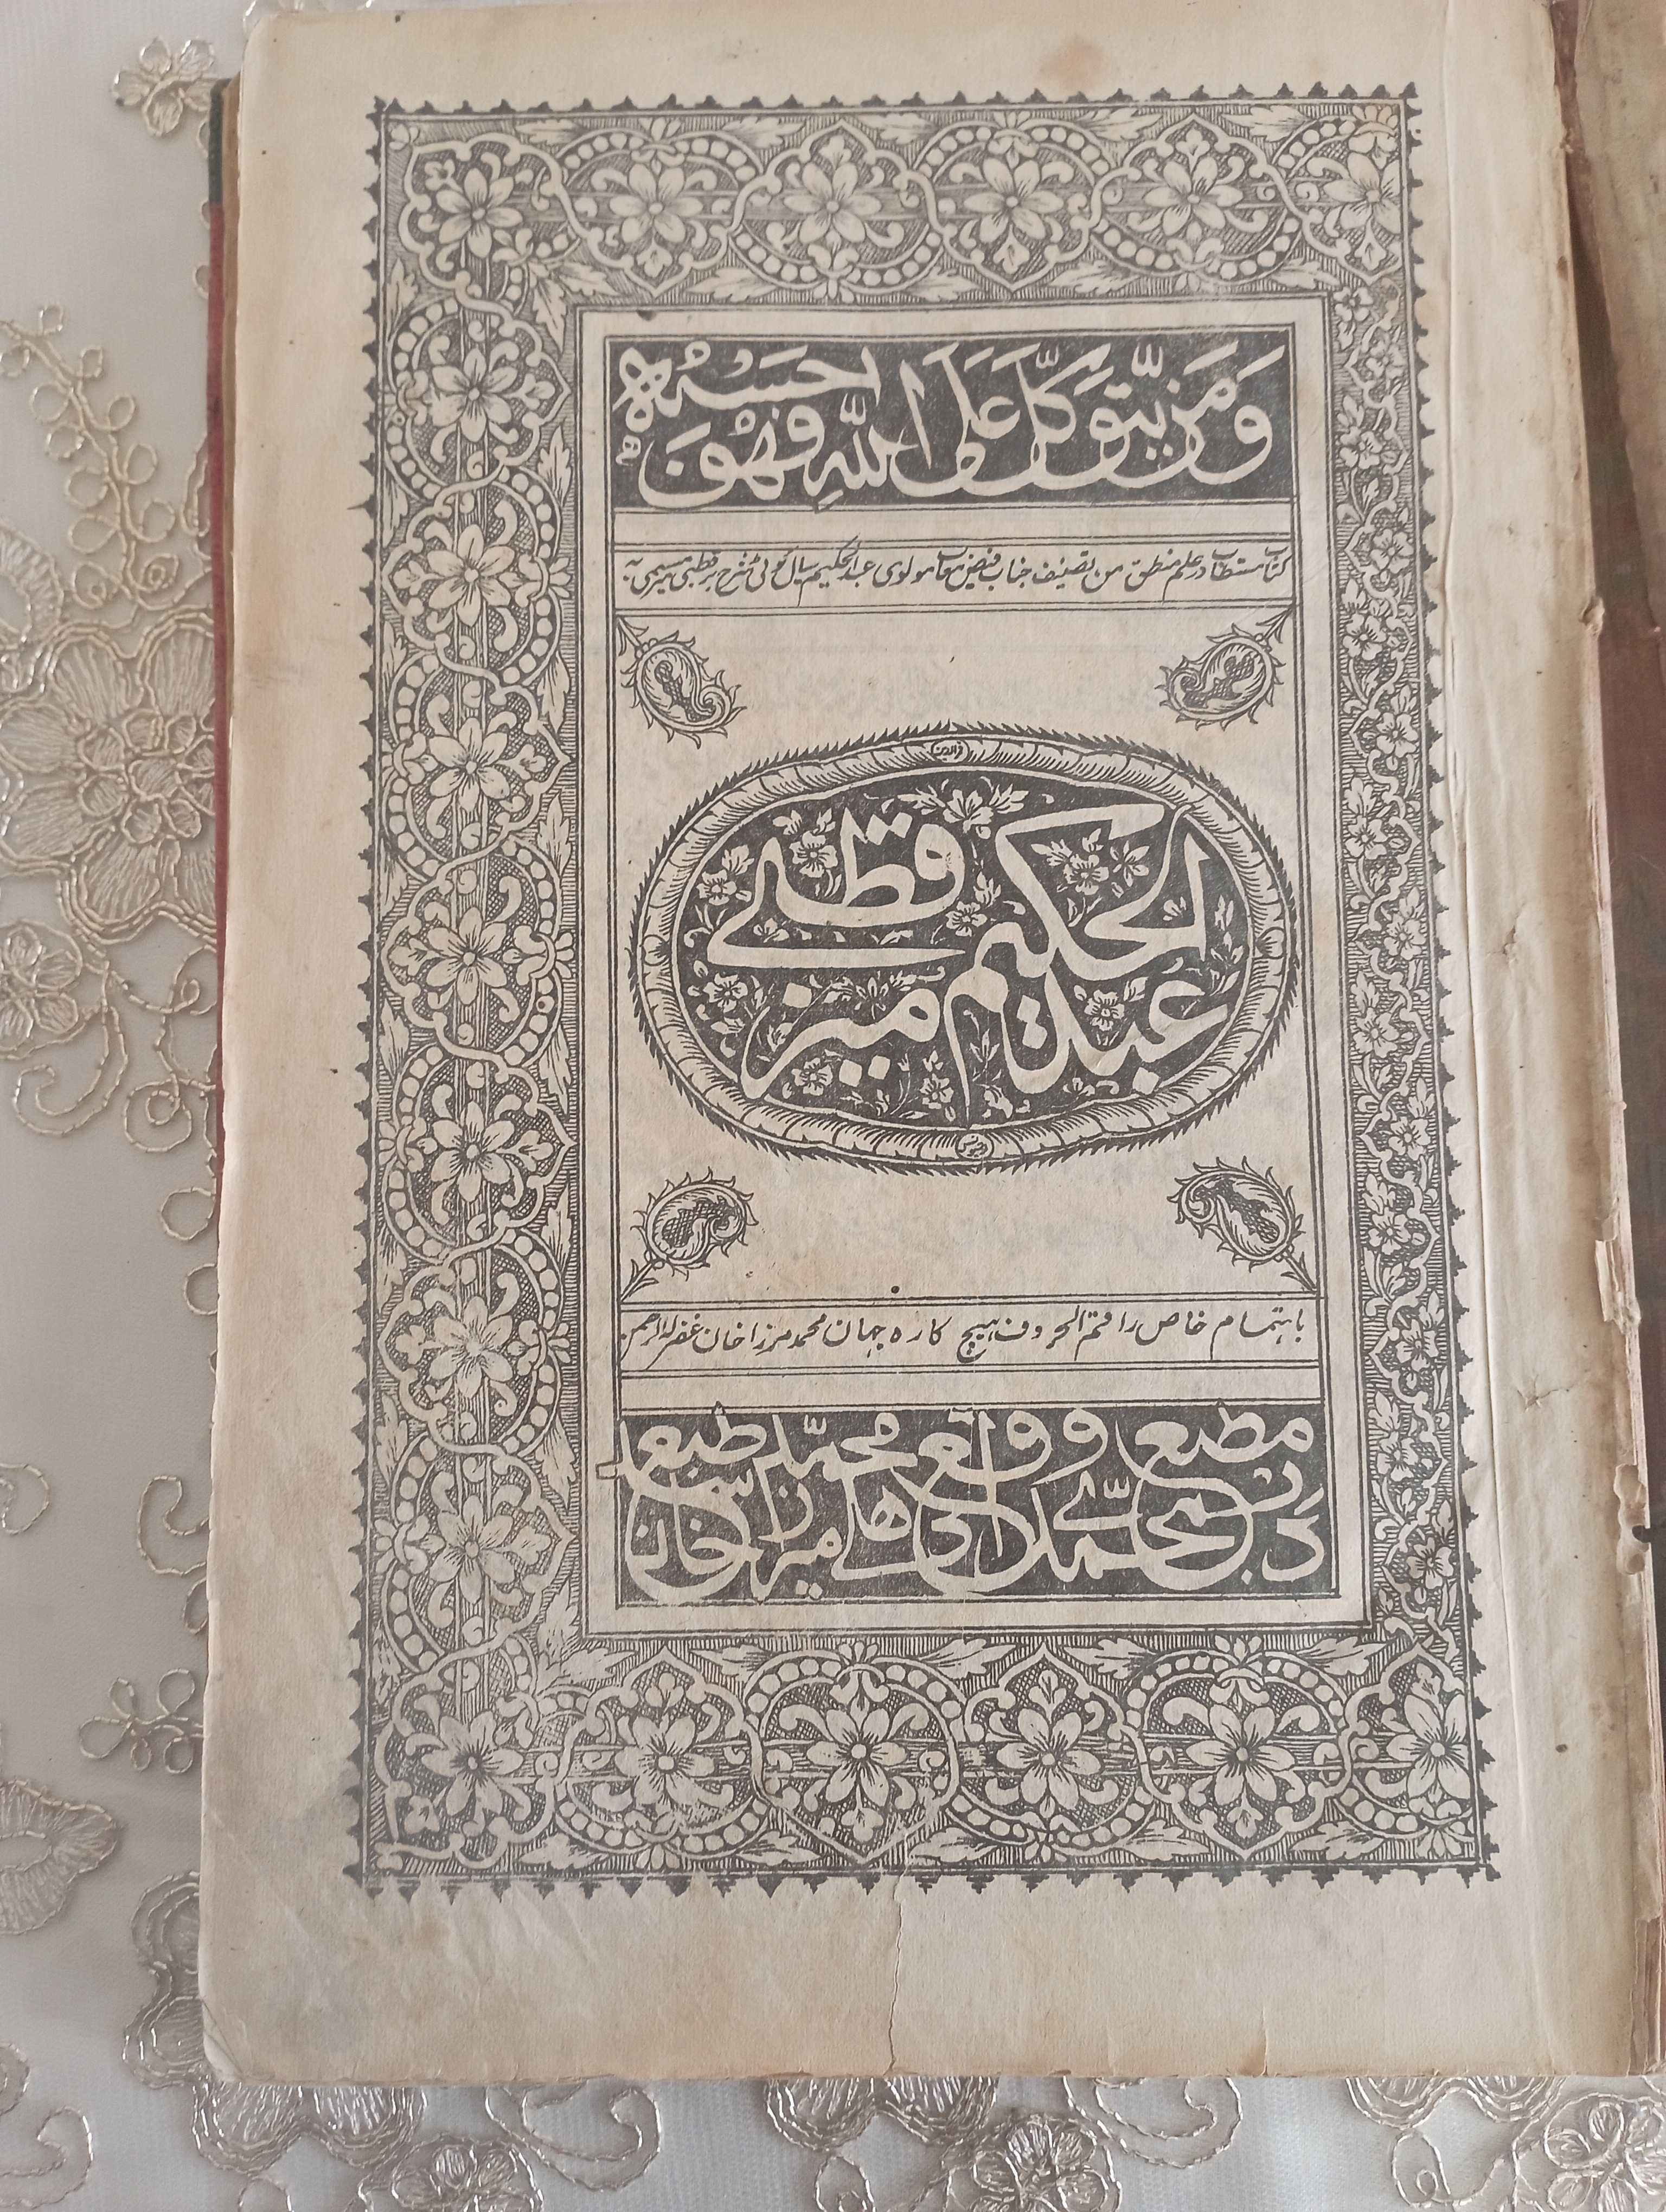 وَمَن يَّتَوَكَّلْ عَلَى اللّٰهِ فَهُوَ حَسْبُهٗ
کتاب مستطاب در علم منطق من تصنیف جناب فیض مآب مولوی عبد الحکیم سیالکوٹی شرح بر قطبی میر مسمی به
عبد الحکیم قطبی میر
باہتمام خاص راقم الحروف ہیچ کارہ جہان محمد مرزا خان غفرلہ الرحمن
در مطبع محمدی واقع لاہور محمد میرزا خان طبع